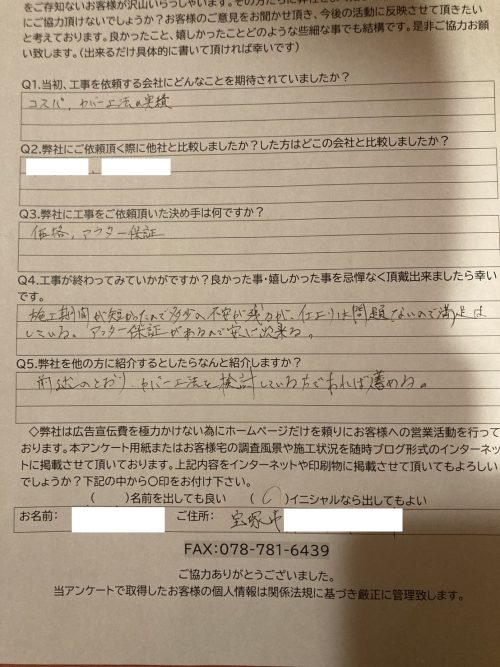 をご存知ないお客様が沢山いらっしゃいます。その方たちに弊社
にご協力頂けないでしょうか？お客様のご意見をお聞かせ頂き、今後の活動に反映させて頂きたい
と考えております。良かったこと、嬉しかったことどのような些細な事でも結構です。是非ご協力お願
い致します。（出来るだけ具体的に書いて頂ければ幸いです）
Q1.当初、工事を依頼する会社にどんなことを期待されていましたか？
コスパ，カバー工法の実績
Q2.弊社にご依頼頂く際に他社と比較しましたか？した方はどこの会社と比較しましたか？
、
Q3.弊社に工事をご依頼頂いた決め手は何ですか？
価格，アフター保証
Q4.工事が終わってみていかがですか？良かった事・嬉しかった事を忌憚なく頂戴出来ましたら幸い
です。
施工期間が短かったので多少の不安が残るが、仕上りは問題ないので満足は
している。アフター保証があるので安心出来る。
Q5.弊社を他の方に紹介するとしたらなんと紹介しますか？
前述のとおり，カバー工法を検討している方であれば薦める。
◇弊社は広告宣伝費を極力かけない為にホームページだけを頼りにお客様への営業活動を行って
おります。本アンケート用紙またはお客様宅の調査風景や施工状況を随時ブログ形式のインターネッ
トに掲載させて頂いております。上記内容をインターネットや印刷物に掲載させて頂いてもよろしい
でしょうか？下記の中から〇印をお付け下さい。
（　　）名前を出しても良い　（〇）イニシャルなら出してもよい
お名前：　ご住所：　宝塚市
FAX：078-781-6439
ご協力ありがとうございました。
当アンケートで取得したお客様の個人情報は関係法規に基づき厳正に管理致します。